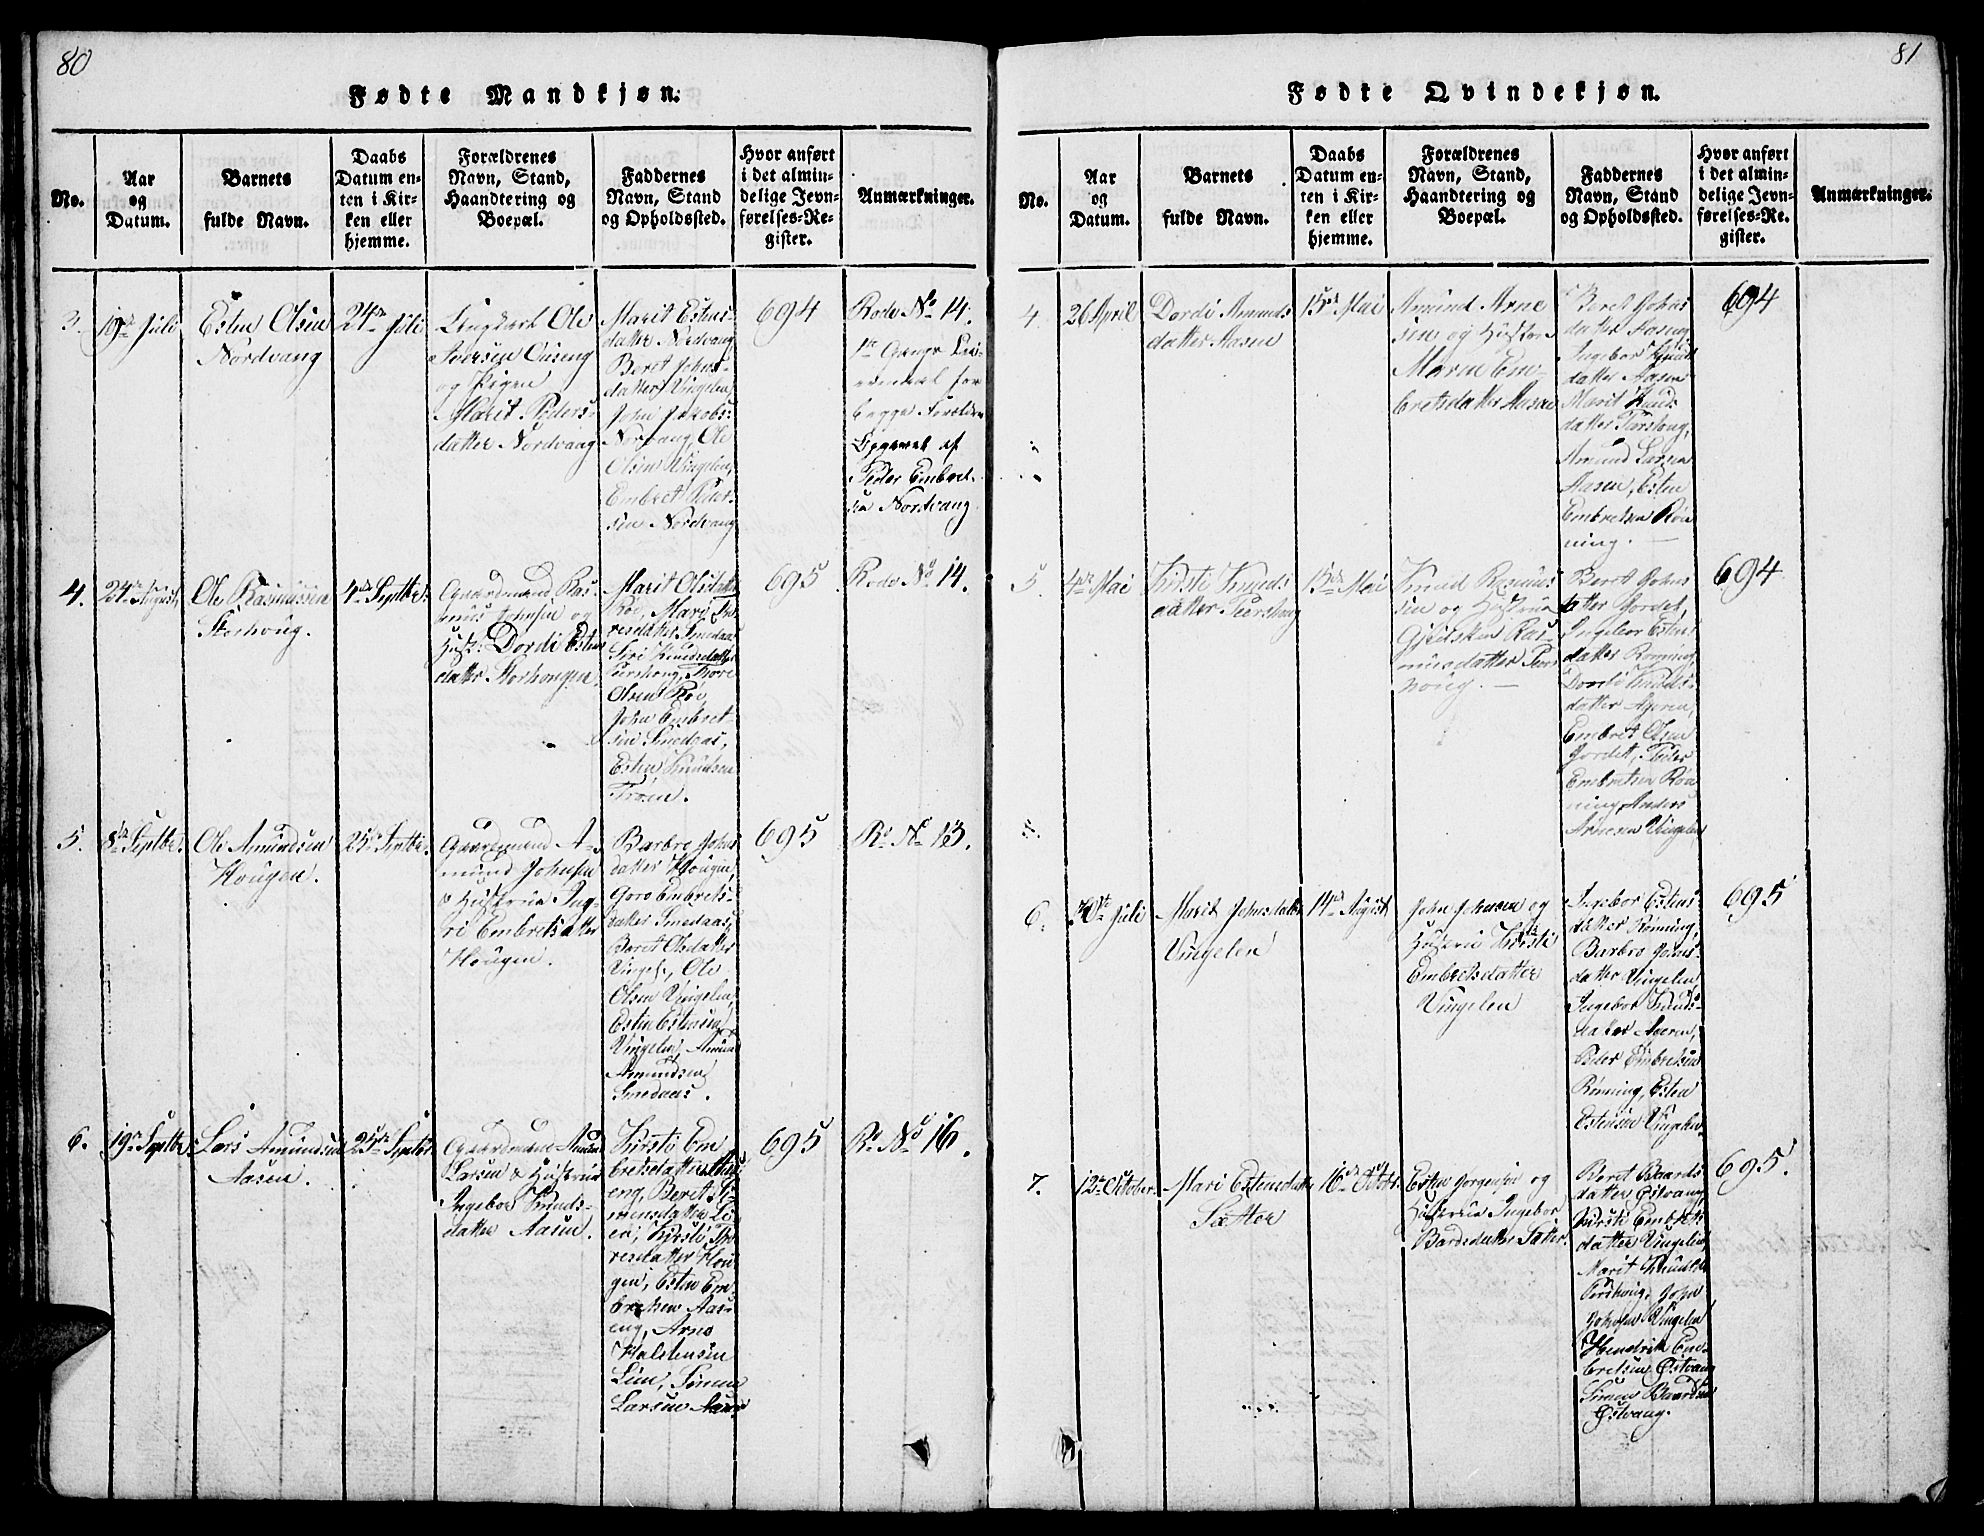 80
Fødte Mandkjøn.
No.
Aar
og
Datum.
Barnets
fulde Navn.
Daabs
Datum en-
ten i Kir-
ken eller
hjemme.
Forældrenes
Navn, Stand,
Haandtering og
Boepæl.
Faddernes
Navn, Stand
og Opholdssted.
Hvor anført
i det almin-
delige Jevn-
førelses-Re-
gister.
Anmærkninger.
3.
19de Juli
Esten Olsen
Nordvang
24de Juli
Ungkarl Ole
Iversen
og Pigen
Marit Peders-
datter Nordvang
Marit Estens-
datter Nordvang
Beret Johns-
datter Vingelen
John Jakobs:
Norvang, Ole
Olsen Vingelen,
Embret Peder-
sen Nordvang
694
Rode No 14.
1te Gangs Lei-
ermaal for
begge Forældre
Opgivet af
Peder Embret-
sen Nordvang.
4.
24de August
Ole Rasmussen
Storhoug.
4de Septbr.
Gaardmand Ras-
mus Johnsen og
Hust: Dordi Estens
datter Storhougen
Marit Olsdatter
Roe, Mari Tho-
resdatter Smedaas
Siri Knudsdatter
Thore
Olsen Roe,
John Embret-
sen Smedaas,
Esten Knudsen
Trøen.
695
Rode No 14.
5.
8de Septbr.
Ole Amundsen
Hougen.
25de Septbr.
Gaardmand A-
mund Johnsen
& Hustrue Ing-
ri Embretsdatter
Hougen.
Barbro Johns
datter Hougen,
Goro Embrets-
datter Smedaas,
Beret Olsdatter
Ole
Olsen Vingelen,
Esten Estensen
Vingelen, Amun
Amundsen
Smedaas.
695
Ro No 13.
6.
19de Septbr.
Lars Amundsen
Aasen.
25de Septbr
Gaardmand Amun
Larsen & Hustrue
Ingebor Knuds-
datter Aasen.
Kirsti Em
bretsdatter Aas-
eng, Beret Si-
mensdatter Li-
en, Kirsti Tho-
resdatter Hou-
gen, Esten Em-
bretsen Aas-
eng, Arne
Halstensen
Lien, Simen
Larsen Aasen
695
Ro No 16.
81
Fødte Qvindekjøn.
No.
Aar
og
Datum.
Barnets
fulde Navn.
Daabs
Datum en-
ten i Kir-
ken eller
hjemme.
Forældrenes
Navn, Stand,
Haandtering og
Boepæl.
Faddernes
Navn, Stand
og Opholdssted.
Hvor anført
i det almin-
delige Jevn-
førelses-Re-
gister.
Anmærkninger.
4.
26 April
Dordi Amunds
datter Aasen
15de Mai
Amund Arne
sen og Hustrue
Maren Em-
bretsdatter Aasen
Beret Johns
datter Aaseng
Ingebor Knuds
datter Aasen
Marit Knuds
datter
Amund Larsen
Aasen, Esten
Embretsen Røn
ning.
694
5.
4de Mai
Kirsti Knuds
datter
15de Mai
Knud Rasmus
sen og Hustrue
Ras-
musdatter
Beret Johns
datter Jordet,
Ingebor Estens
datter Rønning,
Dordi Knuds-
datter Ageren,
Embret Olsen
Jordet, Peder
Embretsen Røn
ning, Anders
Arnesen Vingelen
694
6.
30te Juli
Marit Johnsdatter
Vingelen
14de August
John Johnsen og
Hustrue Kirsti
Embretsdatter
Vingelen
Ingebor Estens-
datter Rønning,
Barbro Johns-
datter Vingelen
Ingebor Knuds-
datter Ageren,
Peder Embretsen
Rønning, Esten
Estensen Vingelen.
695
7.
12te October
Mari Estensdatter
Sætter
16de Octobr.
Esten Jørgensen og
Hustrue Ingebor
Bardsdatter Sætter.
Beret Baards
datter Østvang
Kirsti Embrets
datter Vingelen,
Marit Knudsd.
John
Johnsen Vingelen
Hendrik Em-
bretsen Østvang
Simen Baardsen
Østvang.
695.